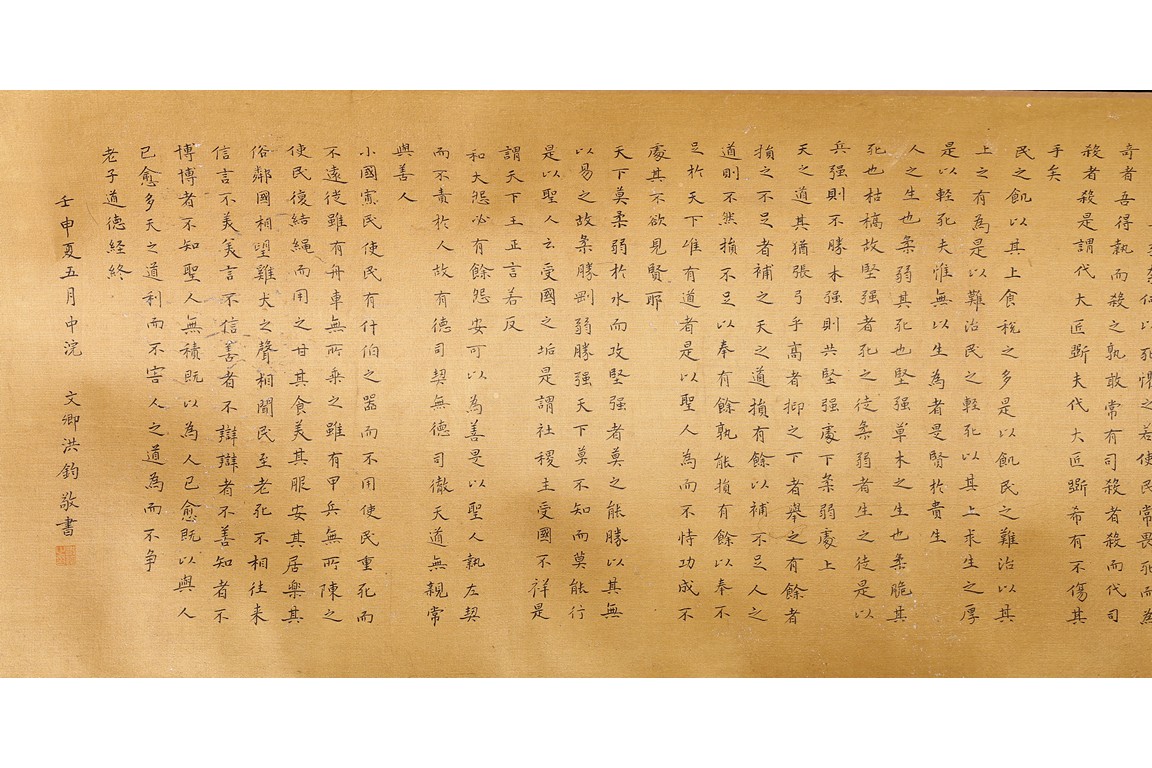 民不畏死奈何以死懼之若使民常畏死而為
奇者吾得執而殺之孰敢常有司殺者殺而代司
殺者殺是謂代大匠斲夫代大匠斲希有不傷其
手矣
民之飢以其上食稅之多是以飢民之難治以其
上之有為是以難治民之輕死以其上求生之厚
是以輕死夫惟無以生為者是賢於貴生
人之生也柔弱其死也堅强草木之生也柔脆其
死也枯槁故堅强者死之徒柔弱者生之徒是以
兵强則不勝木强則共堅强處下柔弱處上
天之道其猶張弓乎高者抑之下者舉之有餘者
損之不足者補之天之道損有餘以補不足人之
道則不然損不足以奉有餘孰能損有餘以奉不
足於天下唯有道者是以聖人為而不恃功成不
處其不欲見賢耶
天下莫柔弱於水而攻堅强者莫之能勝以其無
以易之故柔勝剛弱勝强天下莫不知而莫能行
是以聖人云受國之垢是謂社稷主受國不祥是
謂天下王正言若反
和大怨必有餘怨安可以為善是以聖人執左契
而不責於人故有德司契無德司徹天道無親常
與善人
小國寡民使民有什伯之器而不用使民重死而
不遠徙雖有舟車無所乘之雖有甲兵無所陳之
使民復結繩而用之甘其食美其服安其居樂其
俗鄰國相望雞犬之聲相聞民至老死不相往来
信言不美美言不信善者不辯辯者不善知者不
博博者不知聖人無積既以為人已愈既以與人
已愈多天之道利而不害人之道為而不争
老子道德经终
壬申夏五月中浣 文卿洪鈞敬書